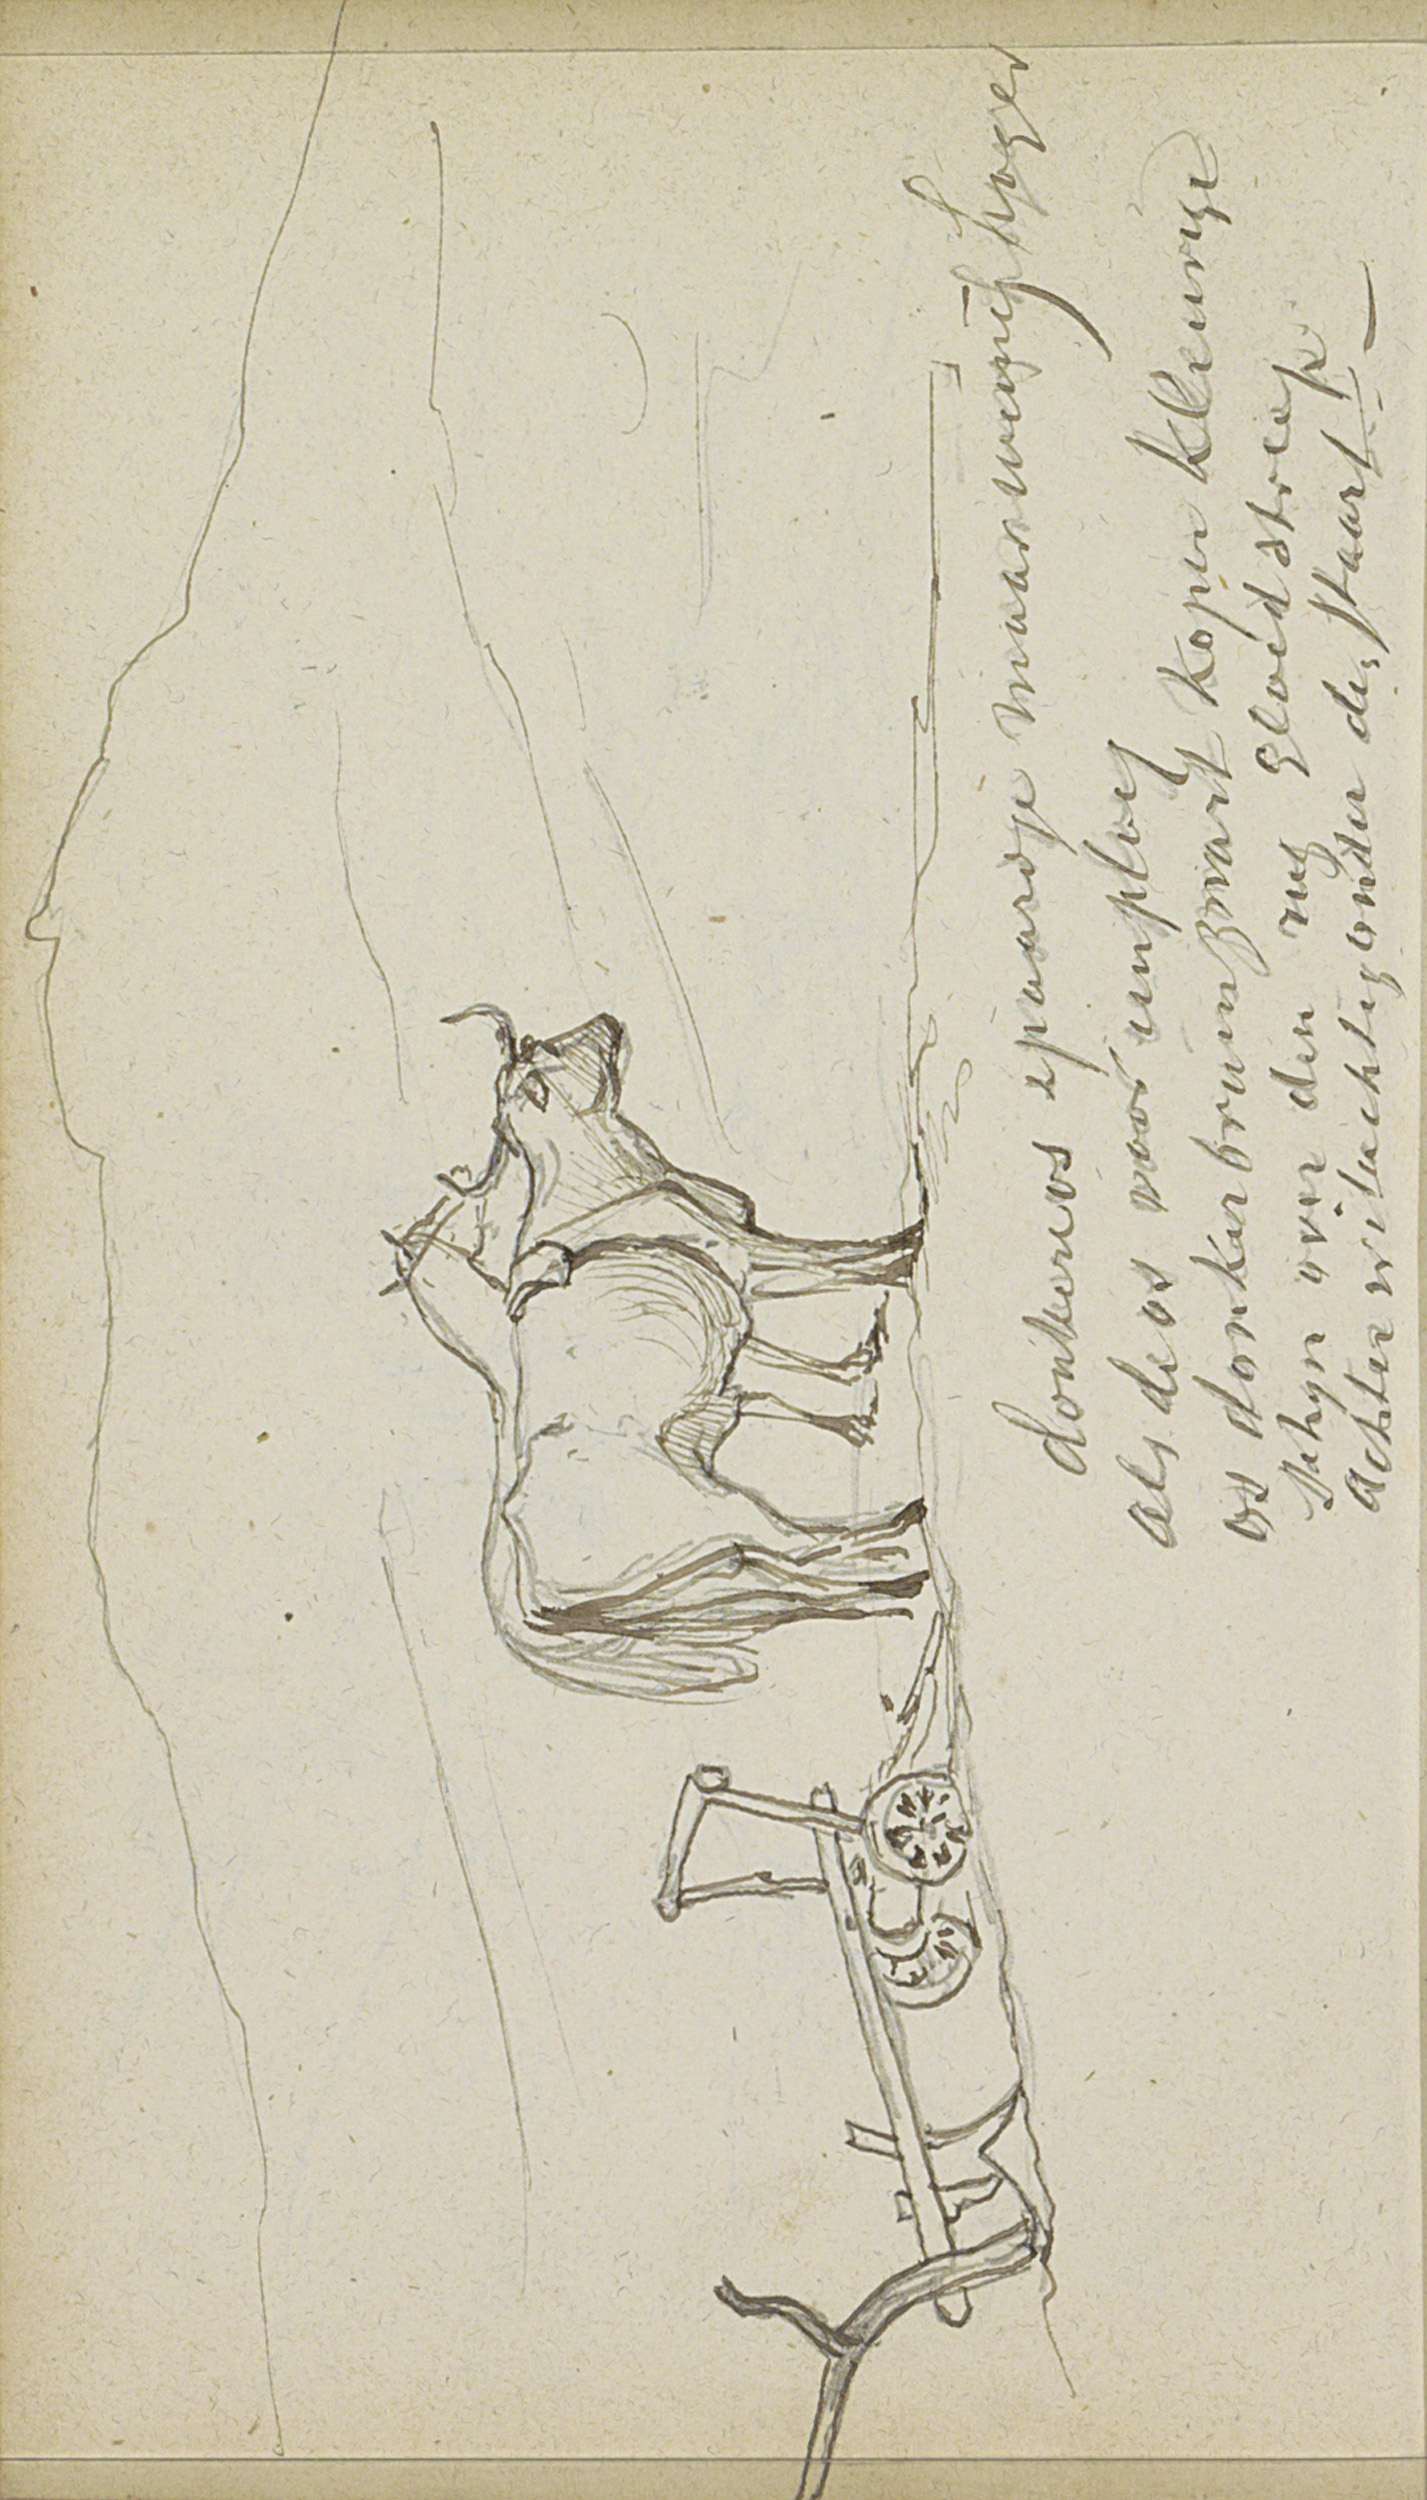 donkere os epaarge maar weinig hooger
als de os voor een ploeg
os donker bruin zwart koper kleurige
schijn over den rug gloeid streep
achter witachtig onder de staart —